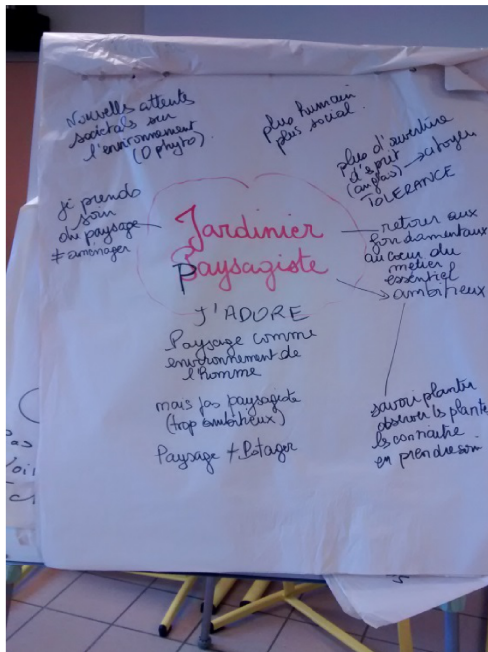 Nouvelles attentes
sociétals sur
l'environnement
(0 phyto).
plus humain
plus social.
plus d'ouverture
d'esprit
(anglais) → citoyen
TOLERANCE
je prends
soin
du paysage
≠ aménager
Jardinier
Paysagiste
retour aux
fondamentaux
au cœur du
métier
essentiel
ambitieux
J'ADORE
Paysage comme
environnement de
l'homme
mais pas paysagiste
(trop ambitieux)
Paysage ≠ Potager
savoir planter
observer les plantes
les connaitre
en prendre soin